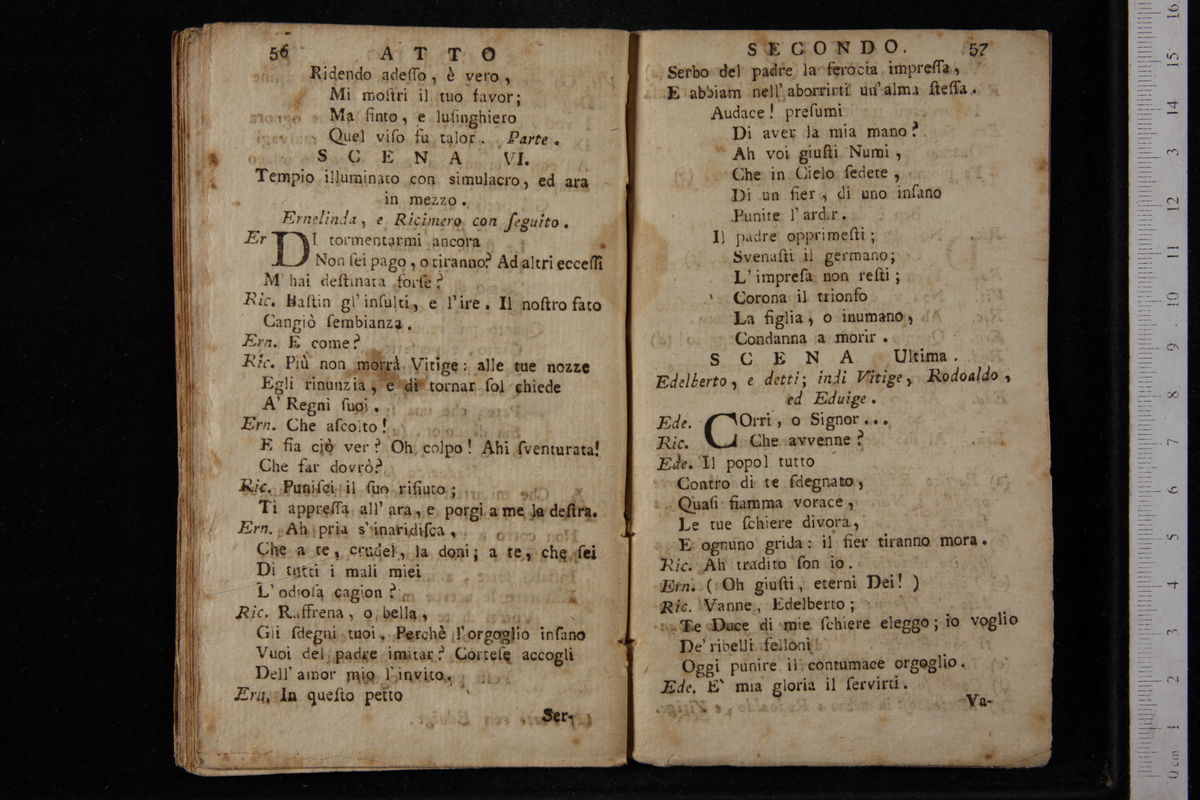 56 ATTO
Ridendo adeſſo, è vero,
Mi moſtri il tuo favor;
Ma finto, e luſinghiero
Quel viſo fu talor. Parte.
SCENA VI.
Tempio illuminato con simulacro, ed ara
in mezzo.
Ernelinda, e Ricimero con ſeguito.
Er DI tormentarmi ancora
Non ſei pago, o tiranno? Ad altri ecceſſi
M' hai deſtinata forſe?
Ric. Baſtin gl' inſulti, e l'ire. Il noſtro fato
Cangiò ſembianza.
Ern. E come?
Ric. Più non morrà Vitige: alle tue nozze
Egli rinunzia, e di tornar ſol chiede
A' Regni ſuoi.
Ern. Che aſcolto!
E fia ciò ver? Oh colpo! Ahi ſventurata!
Che far dovrò?
Ric. Puniſci il ſuo rifiuto;
Ti appreſſa all' ara, e porgi a me la deſtra.
Ern. Ah pria s'inaridiſca,
Che a te, crudel, la doni; a te, che ſei
Di tutti i mali miei
L' odioſa cagion?
Ric. Raffrena, o bella,
Gli ſdegni tuoi. Perchè l'orgoglio inſano
Vuoi del padre imitar? Corteſe accogli
Dell' amor mio l'invito.
Ern. In queſto petto
Ser-
SECONDO. 57
Serbo del padre la ferocia impreſſa,
E abbiam nell' aborrirti un'alma ſteſſa.
Audace! preſumi
Di aver la mia mano?
Ah voi giuſti Numi,
Che in Cielo ſedete,
Di un fier, di uno inſano
Punite l'ardir.
Il padre opprimeſti;
Svenaſti il germano;
L' impreſa non reſti;
Corona il trionfo
La figlia, o inumano,
Condanna a morir.
SCENA Ultima.
Edelberto, e detti; indi Vitige, Rodoaldo,
ed Eduige.
Ede. COrri, o Signor...
Ric. Che avvenne?
Ede. Il popol tutto
Contro di te ſdegnato,
Quaſi fiamma vorace,
Le tue ſchiere divora,
E ognuno grida: il fier tiranno mora.
Ric. Ah tradito ſon io.
Ern. (Oh giuſti, eterni Dei!)
Ric. Vanne, Edelberto;
Te Duce di mie ſchiere eleggo; io voglio
De' ribelli felloni
Oggi punire il contumace orgoglio.
Ede. E' mia gloria il ſervirti.
Va-
0 cm 1 2 3 4 5 6 7 8 9 10 11 12 13 14 15 16